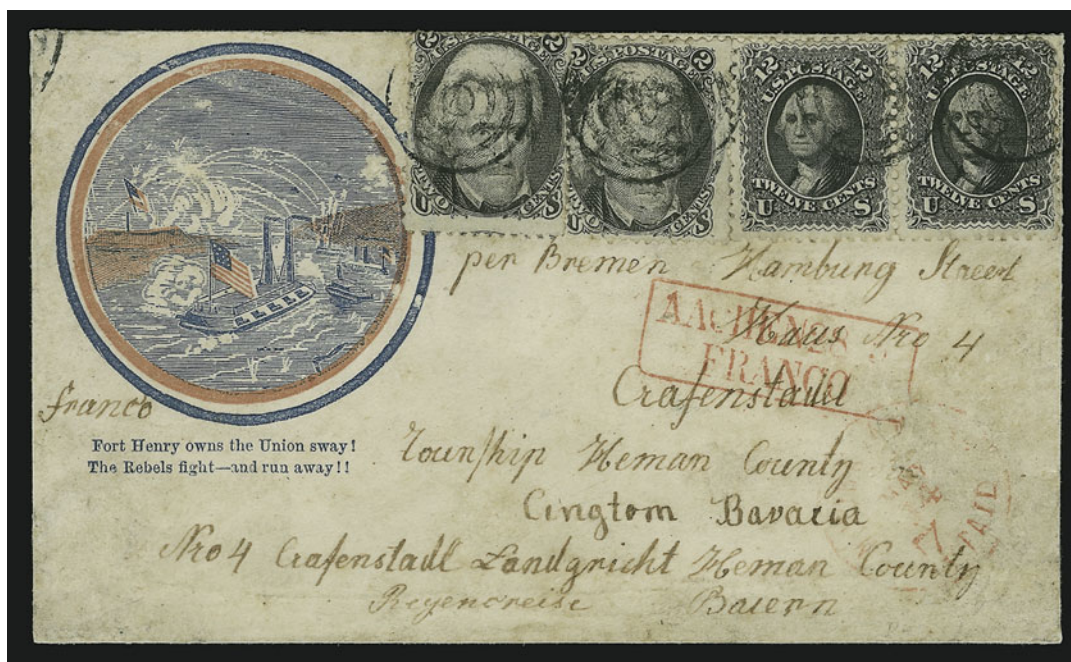 2 U.S. POSTAGE 2
2 U.S. POSTAGE 2
12 U.S. POSTAGE 12
12 U.S. POSTAGE 12
U CENTS S
U CENTS S
TWELVE CENTS
U S
TWELVE CENTS
U S
per Bremen Hamburg Street
AACHEN
FRANCO
Haus Nro 4
Crafenstadl
franco
Fort Henry owns the Union sway!
The Rebels fight—and run away!!
Township Heman County
Cingtom Bavaria
PAID
Nro 4 Crafenstadl Landgricht Heman County
Regencreise Baiern